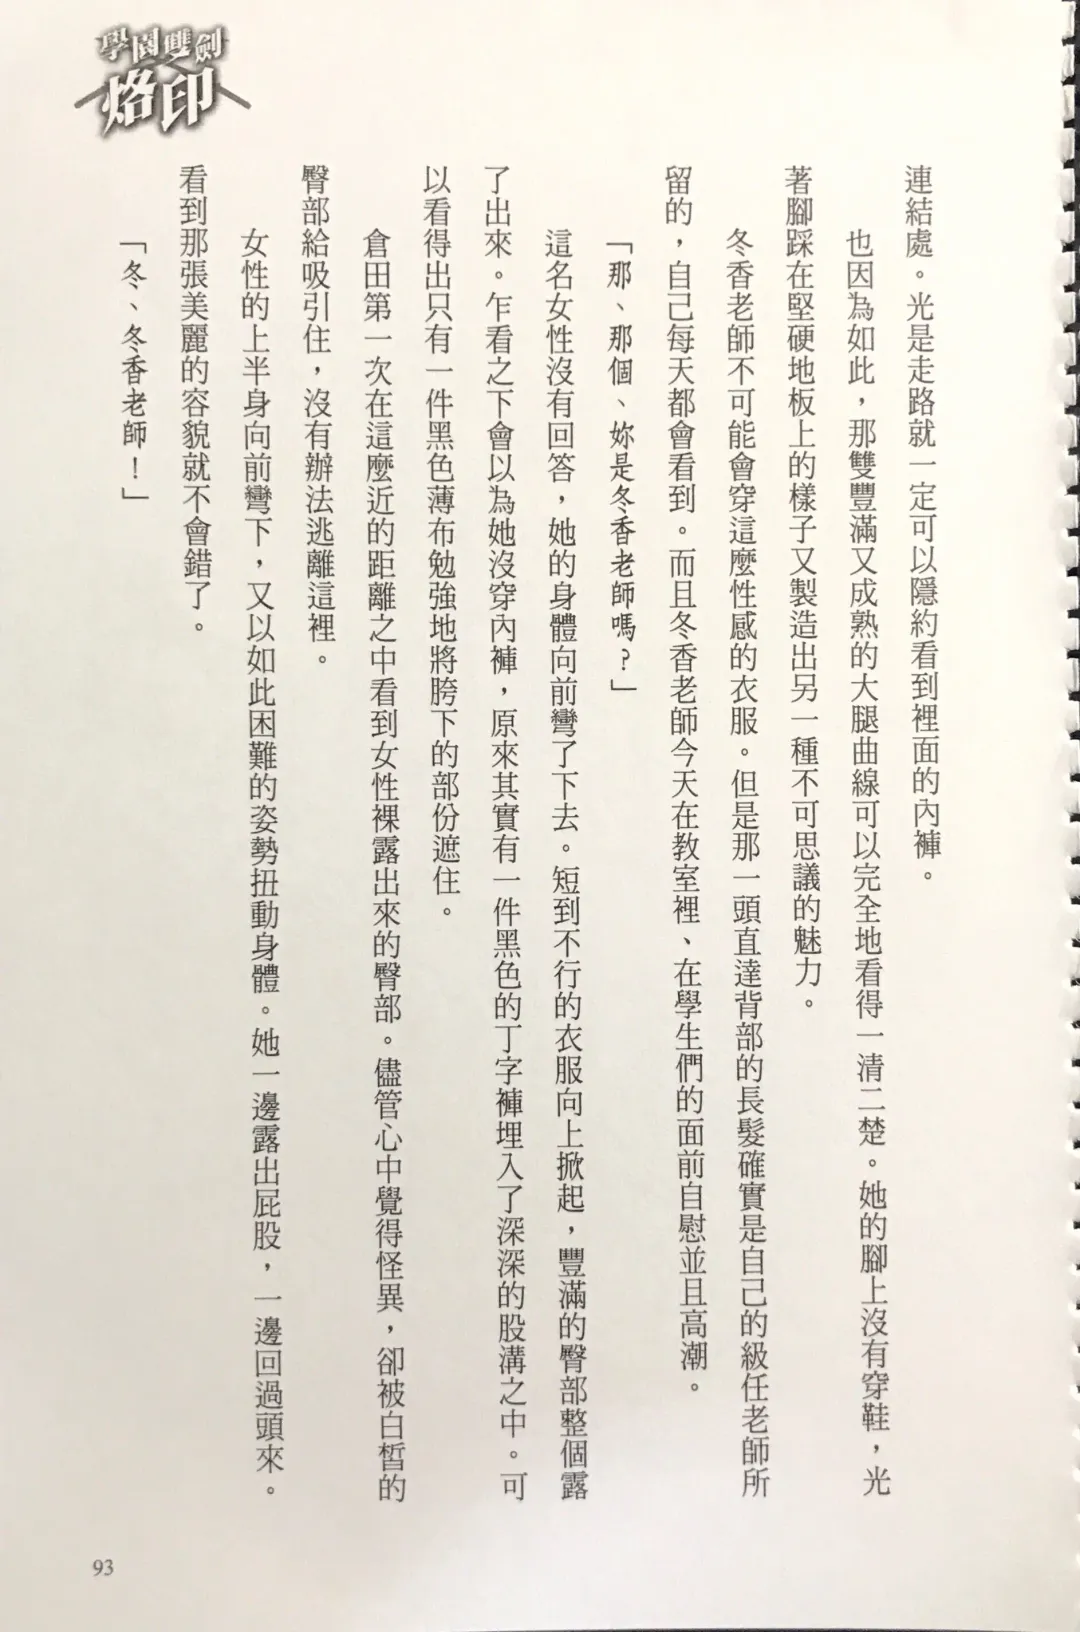 學園雙劍
烙印
連結處。光是走路就一定可以隱約看到裡面的內褲。
也因為如此，那雙豐滿又成熟的大腿曲線可以完全地看得一清二楚。她的腳上沒有穿鞋，光
著腳踩在堅硬地板上的樣子又製造出另一種不可思議的魅力。
冬香老師不可能會穿這麼性感的衣服。但是那一頭直達背部的長髮確實是自己的級任老師所
留的，自己每天都會看到。而且冬香老師今天在教室裡、在學生們的面前自慰並且高潮。
「那、那個、妳是冬香老師嗎？」
這名女性沒有回答，她的身體向前彎了下去。短到不行的衣服向上掀起，豐滿的臀部整個露
了出來。乍看之下會以為她沒穿內褲，原來其實有一件黑色的丁字褲埋入了深深的股溝之中。可
以看得出只有一件黑色薄布勉強地將胯下的部份遮住。
倉田第一次在這麼近的距離之中看到女性裸露出來的臀部。儘管心中覺得怪異，卻被白皙的
臀部給吸引住，沒有辦法逃離這裡。
女性的上半身向前彎下，又以如此困難的姿勢扭動身體。她一邊露出屁股，一邊回過頭來。
看到那張美麗的容貌就不會錯了。
「冬、冬香老師！」
93